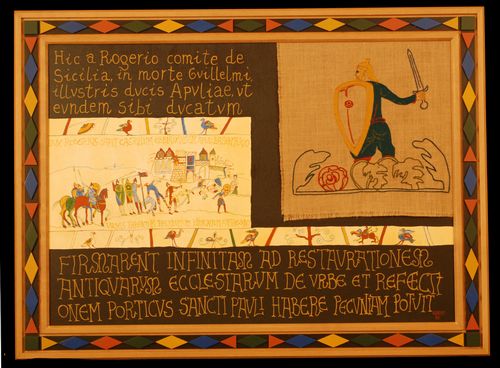 Hic a Rogerio comite de
Sicilia, in morte Guillelmi,
illustris ducis Apuliae, ut
eundem sibi ducatum
FIRMARENT, INFINITAM AD RESTAURATIONEM
ANTIQUARUM ECCLESIARUM DE URBE ET REFECTI
ONEM PORTICUS SANCTI PAULI HABERE PECUNIAM POTUIT